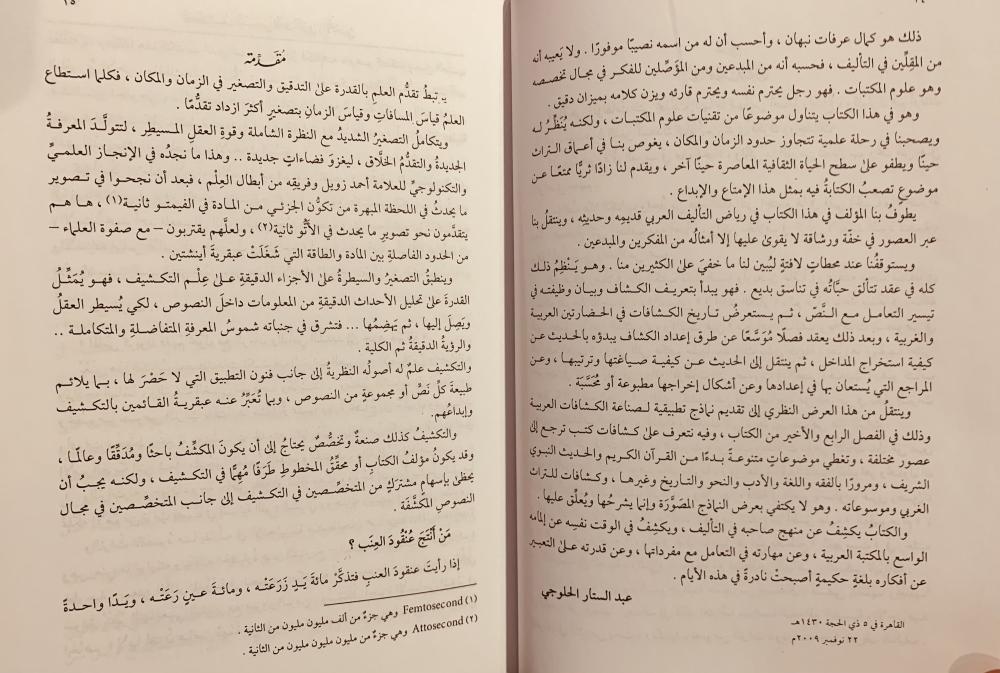 ذلك هو كمال عرفات نبهان ، وأحسب أن له من اسمه نصيبًا موفورًا . ولا يَعيبه أنه
من المُقِلِّين في التأليف ، فحسبه أنه من المبدعين ومن المؤَصِّلين للفكر في مجال تخصصه
وهو علوم المكتبات . فهو رجل يحترم نفسه ويحترم قارئه ويزن كلامه بميزان دقيق .
وهو في هذا الكتاب يتناول موضوعًا من تقنيات علوم المكتبات ، ولكنه يُنَظِّرُ له
ويصحبنا في رحلة علمية تتجاوز حدود الزمان والمكان ، يغوص بنا في أعماق التراث
حينًا ويطفو على سطح الحياة الثقافية المعاصرة حينًا آخر ، ويقدم لنا زادًا ثريًّا ممتعًا عن
موضوعٍ تصعبُ الكتابةُ فيه بمثل هذا الإمتاع والإبداع .
يطوفُ بنا المؤلف في هذا الكتاب في رياض التأليف العربي قديمِه وحديثِه ، وينتقلُ بنا
عبر العصور في خفّة ورشاقة لا يقوىٰ عليها إلا أمثالُه من المفكرين والمبدعين .
ويستوقفُنا عند محطاتٍ لافتةٍ ليُبين لنا ما خفيَ علىٰ الكثيرين منا . وهو يَنْظِمُ ذلك
كله في عقد تتألق حبَّاتُه في تناسق بديع . فهو يبدأ بتعريف الكشاف وبيان وظيفته في
تيسير التعامل مع النَّصّ ، ثم يستعرضُ تاريخ الكشافات في الحضارتين العربية
والغربية ، وبعد ذلك يعقد فصلًا مُوَسَّعًا عن طرق إعداد الكشاف يبدؤه بالحديث عن
كيفية استخراج المداخل ، ثم ينتقل إلى الحديث عن كيفية صياغتها وترتيبها ، وعن
المراجع التي يُستعان بها في إعدادها وعن أشكال إخراجها مطبوعة أو مُحَسَّبَة .
وينتقلُ من هذا العرض النظري إلى تقديم نماذج تطبيقية لصناعة الكشافات العربية
وذلك في الفصل الرابع والأخير من الكتاب ، وفيه نتعرف علىٰ كشافات كتب ترجع إلى
عصور مختلفة ، وتغطي موضوعاتٍ متنوعةً بدءًا من القرآن الكريم والحديث النبوي
الشريف ، ومرورًا بالفقه واللغة والأدب والنحو والتاريخ وغيرها ، وكشافات للتراث
الغربي وموسوعاته . وهو لا يكتفي بعرض النماذج المصَوَّرة وإنما يشرحُها ويُعلِّق عليها .
والكتابُ يكشِفُ عن منهج صاحبه في التأليف ، ويكشِفُ في الوقت نفسِه عن إلمامه
الواسع بالمكتبة العربية ، وعن مهارته في التعامل مع مفرداتها ، وعن قدرته علىٰ التعبير
عن أفكاره بلغةٍ حكيمةٍ أصبحتْ نادرةً في هذه الأيام .
عبد الستار الحلوجي
القاهرة في ٥ ذي الحجة ١٤٣٠هـ
٢٢ نوفمبر ٢٠٠٩م
١٥
مُقَدِّمة
يرتبطُ تقدُّم العلمِ بالقدرة علىٰ التدقيق والتصغير في الزمان والمكان ، فكلما استطاع
العلمُ قياسَ المسافاتِ وقياسَ الزمانِ بتصغيرٍ أكثرَ ازداد تقدُّمًا .
ويتكاملُ التصغيرُ الشديدُ مع النظرة الشاملة وقوةِ العقلِ المسيطِر ، لتتولَّدَ المعرفةُ
الجديدةُ والتقدُّمُ الخلَّاق ، ليغزوَ فضاءاتٍ جديدة .. وهذا ما نجدُه في الإنجاز العلميِّ
والتكنولوجيِّ للعلامة أحمد زويل وفريقِه من أبطال العِلْم ، فبعد أن نجحوا في تصوير
ما يحدثُ في اللحظة المبهرة من تكوُّن الجزئي من المادة في الفيمتو ثانية(١) ، ها هم
يتقدَّمون نحو تصويرِ ما يحدث في الأتُّو ثانية(٢) ، ولعلَّهم يقتربون – مع صفوة العلماء –
من الحدود الفاصلةِ بين المادة والطاقة التي شَغَلَتْ عبقريةَ أينشتين .
وينطبقُ التصغيرُ والسيطرةُ علىٰ الأجزاء الدقيقةِ علىٰ عِلْم التكشيف ، فهو يُمَثِّلُ
القدرةَ علىٰ تحليل الأحداث الدقيقةِ من المعلومات داخلَ النصوص ، لكي يُسيطر العقلُ
ويَصِلَ إليها ، ثم يَهضِمُها ... فتشرق في جنباته شموسُ المعرفةِ المتفاضلةِ والمتكاملة ..
والرؤيةُ الدقيقةُ ثم الكلية .
والتكشيف علمٌ له أصولُه النظريةُ إلى جانب فنون التطبيق التي لا حَصْرَ لها ، بما يلائم
طبيعةَ كلِّ نَصٍّ أو مجموعةٍ من النصوص ، وبما تُعَبِّرُ عنه عبقريةُ القائمين بالتكشيف
وإبداعُهم.
والتكشيفُ كذلك صنعةٌ وتخصُّصٌ يحتاجُ إلى أن يكونَ المكشِّفُ باحثًا ومُدَقِّقًا وعالمًا ،
وقد يكونُ مؤلفُ الكتابِ أو محقِّقُ المخطوطِ طَرَفًا مُهِمًّا في التكشيف ، ولكنه يجبُ أن
يحظىٰ بإسهامٍ مشتركٍ من المتخصِّصين في التكشيف إلى جانب المتخصِّصين في مجال
النصوصِ المكَشَّفَة .
مَنْ أَنْتَجَ عُنْقُودَ العِنَب ؟
إذا رأيتَ عنقودَ العنبِ فتذكَّرْ مائةَ يَدٍ زَرَعَتْه ، ومائةَ عينٍ رَعَتْه ، ويَدًا واحدةً
(١) Femtosecond وهي جزءٌ من ألف مليون مليون من الثانية .
(٢) Attosecond وهي جزءٌ من مليون مليون مليون من الثانية .